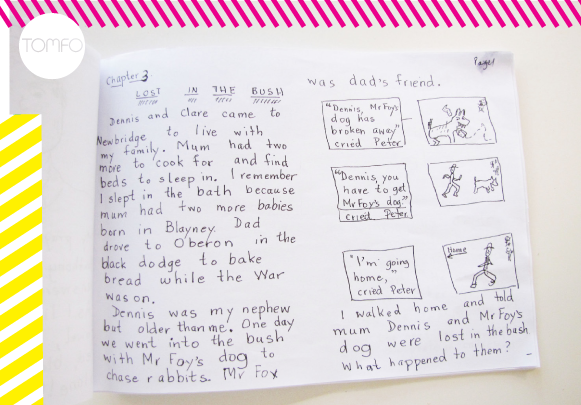 TOMFO
Chapter 3
LOST IN THE BUSH
Dennis and Clare came to
Newbridge to live with
my family. Mum had two
more to cook for and find
beds to sleep in. I remember
I slept in the bath because
mum had two more babies
born in Blayney. Dad
drove to O'beron in the
black dodge to bake
bread while the War
was on.
Dennis was my nephew
but older than me. One day
we went into the bush
with Mr Foy's dog to
chase rabbits. Mr Fox
Page1
was dad's friend.
"Dennis, Mr Foy's
dog has
broken away"
cried Peter
"Dennis, you
have to get
Mr Foy's dog"
cried Peter
"I'm going
home,"
cried Peter
Home
I walked home and told
mum Dennis and Mr Foy's
dog were lost in the bash
What happened to them?